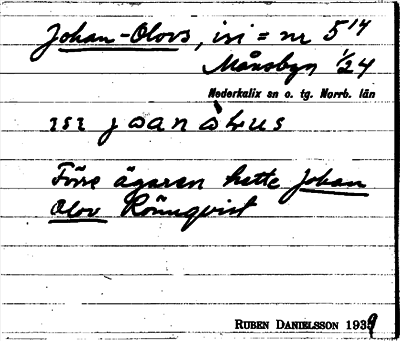 Johan-Olovs, isi = nr 5¹⁴
Månsbyn ½4
Nederkalix sn o. tg. Norrb. län
ɪsɪ jɷanòLus
Förre ägaren hette Johan
Olov Rönnqvist
RUBEN DANIELSSON 1939